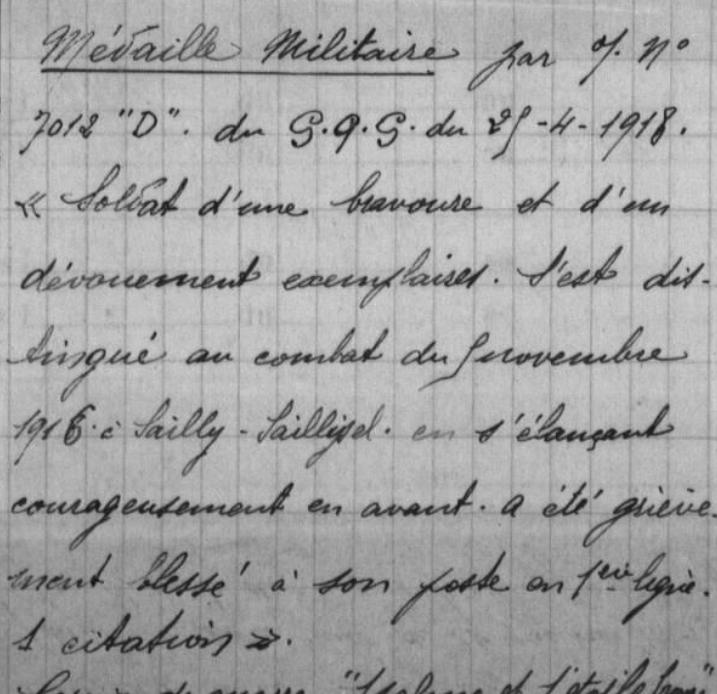 Médaille Militaire par O/. N°
7012 "D". du G.Q.G. du 25-4-1918.
« Soldat d'une bravoure et d'un
dévouement exemplaires. S'est dis-
tingué au combat du 5 novembre
1916 à Sailly-Saillisel. en s'élançant
courageusement en avant. a été griève-
ment blessé à son poste en 1ère ligne.
1 citation ».
de guerre